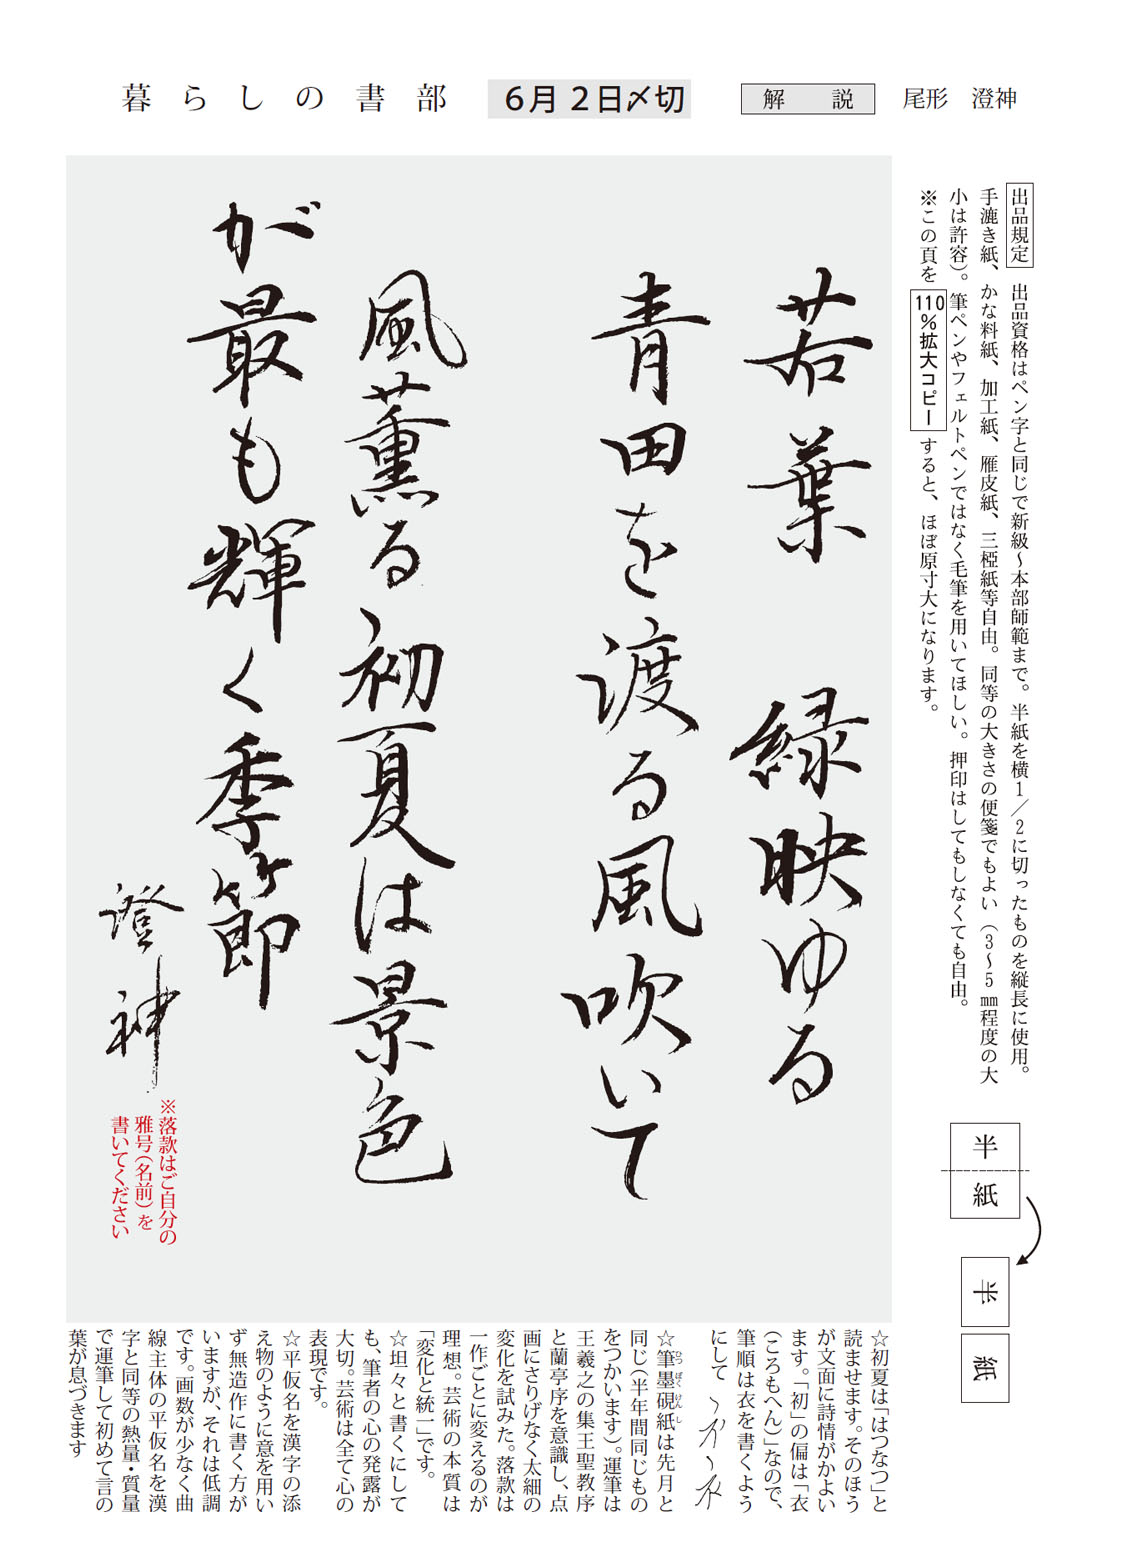 暮らしの書部
6月2日〆切
解説
尾形　澄神
出品規定　出品資格はペン字と同じで新級～本部師範まで。半紙を横1／2に切ったものを縦長に使用。
手漉き紙、かな料紙、加工紙、雁皮紙、三椏紙等自由。同等の大きさの便箋でもよい（3～5㎜程度の大
小は許容）。筆ペンやフェルトペンではなく毛筆を用いてほしい。押印はしてもしなくても自由。
※この頁を110％拡大コピーすると、ほぼ原寸大になります。
半紙
半
紙
若葉　緑映ゆる
青田を渡る風吹いて
風薫る初夏は景色
が最も輝く季節
澄神
※落款はご自分の
雅号（名前）を
書いてください
☆初夏は「はつなつ」と
読ませます。そのほう
が文面に詩情がかよい
ます。「初」の偏は「衣
（ころもへん）」なので、
筆順は衣を書くよう
にして
☆筆墨硯紙は先月と
ひつぼくけんし
同じ（半年間同じもの
をつかいます）。運筆は
王羲之の集王聖教序
と蘭亭序を意識し、点
画にさりげなく太細の
変化を試みた。落款は
一作ごとに変えるのが
理想。芸術の本質は
「変化と統一」です。
☆坦々と書くにして
も、筆者の心の発露が
大切。芸術は全て心の
表現です。
☆平仮名を漢字の添
え物のように意を用い
ず無造作に書く方が
いますが、それは低調
です。画数が少なく曲
線主体の平仮名を漢
字と同等の熱量・質量
で運筆して初めて言の
葉が息づきます